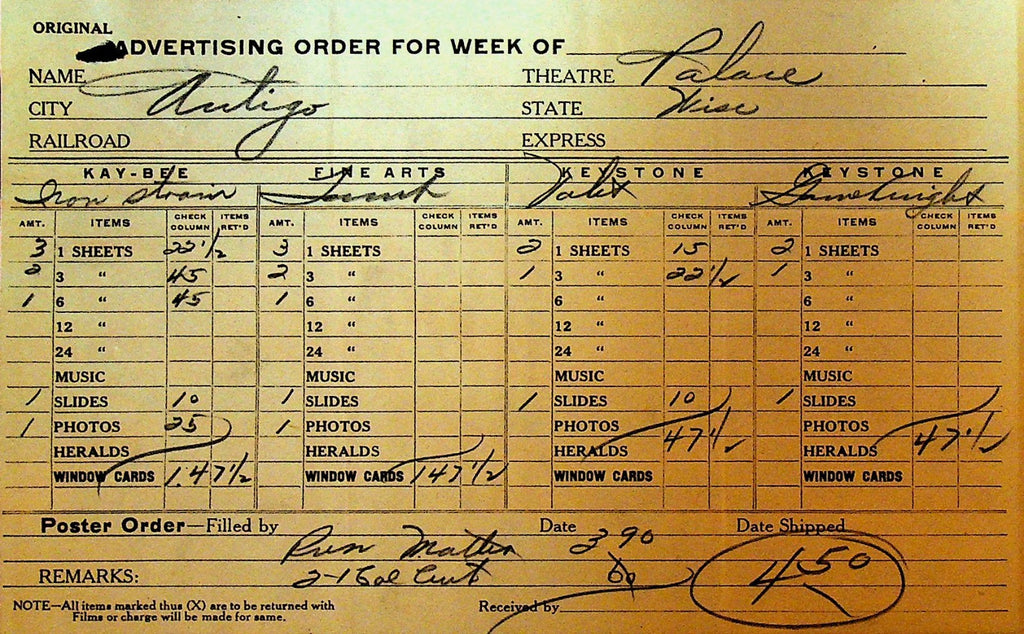 ORIGINAL
ADVERTISING ORDER FOR WEEK OF
NAME THEATRE Palace
CITY Antigo STATE Wisc
RAILROAD EXPRESS
KAY-BEE FINE ARTS KEYSTONE KEYSTONE
Iron Strain
AMT. ITEMS CHECK COLUMN ITEMS RET'D AMT. ITEMS CHECK COLUMN ITEMS RET'D AMT. ITEMS CHECK COLUMN ITEMS RET'D AMT. ITEMS CHECK COLUMN ITEMS RET'D
3 1 SHEETS 22 1/2 3 1 SHEETS 2 1 SHEETS 15 2 1 SHEETS
2 3 " 45 2 3 " 1 3 " 22 1/2 1 3 "
1 6 " 45 1 6 " 6 " 6 "
12 " 12 " 12 " 12 "
24 " 24 " 24 " 24 "
MUSIC MUSIC MUSIC MUSIC
1 SLIDES 10 1 SLIDES 1 SLIDES 10 1 SLIDES
1 PHOTOS 25 1 PHOTOS PHOTOS 47 1/2 PHOTOS 47 1/2
HERALDS HERALDS HERALDS HERALDS
WINDOW CARDS 1.47 1/2 WINDOW CARDS 147 1/2 WINDOW CARDS WINDOW CARDS
Poster Order—Filled by Date Date Shipped
3 90
REMARKS: 2-1 Col Cut 60 4 50
NOTE—All items marked thus (X) are to be returned with
Films or charge will be made for same.
Received by